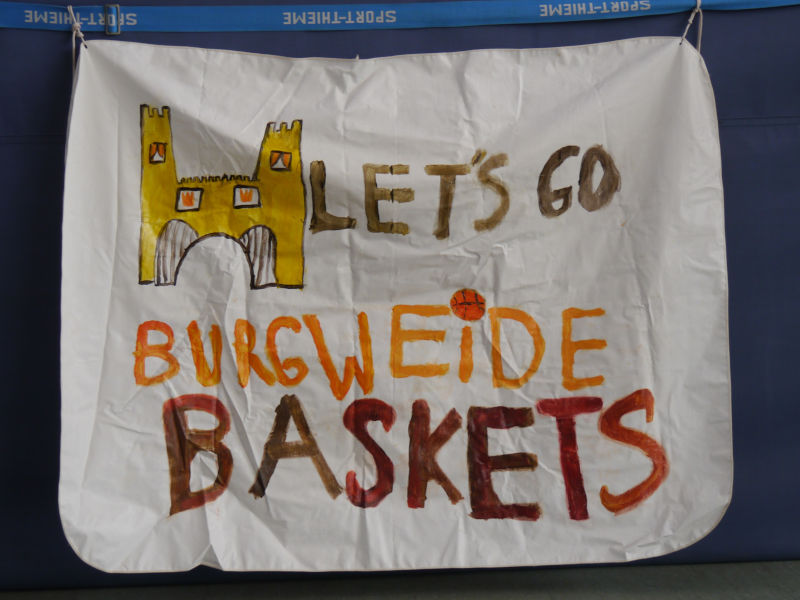 SPORT-THIEME SPORT-THIEME SPORT-THIEME
LET'S GO
BURGWEiDE
BASKETS